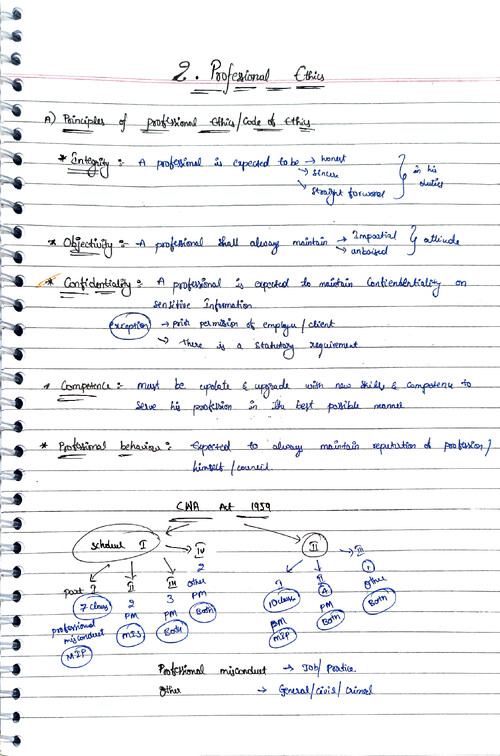 2. Professional Ethics
A) Principles of professional Ethics/Code of Ethics
* Integrity :- A professional is expected to be → honest
→ sincere
→ straight forward
in his duties
* Objectivity :- A professional shall always maintain → Impartial
→ unbaised
attitude
* Confidentiality :- A professional is expected to maintain Confidentiality on
sensitive Information
exception → prior permission of employer/client
→ there is a statutory requirement
* Competence :- must be update & upgrade with new skills & competency to
serve his profession in the best possible manner
* Professional behaviour :- Expected to always maintain reputation of profession/
himself/council.
CWA Act 1959
schedule I → IV II → III
2 1
part I II III other I II other
7 clauses 2 3 PM 10 clauses 4 Both
professional misconduct PM PM Both PM PM
MIP MIS Both MIP Both
Professional misconduct → Job/Practice.
Other → General/civil/criminal